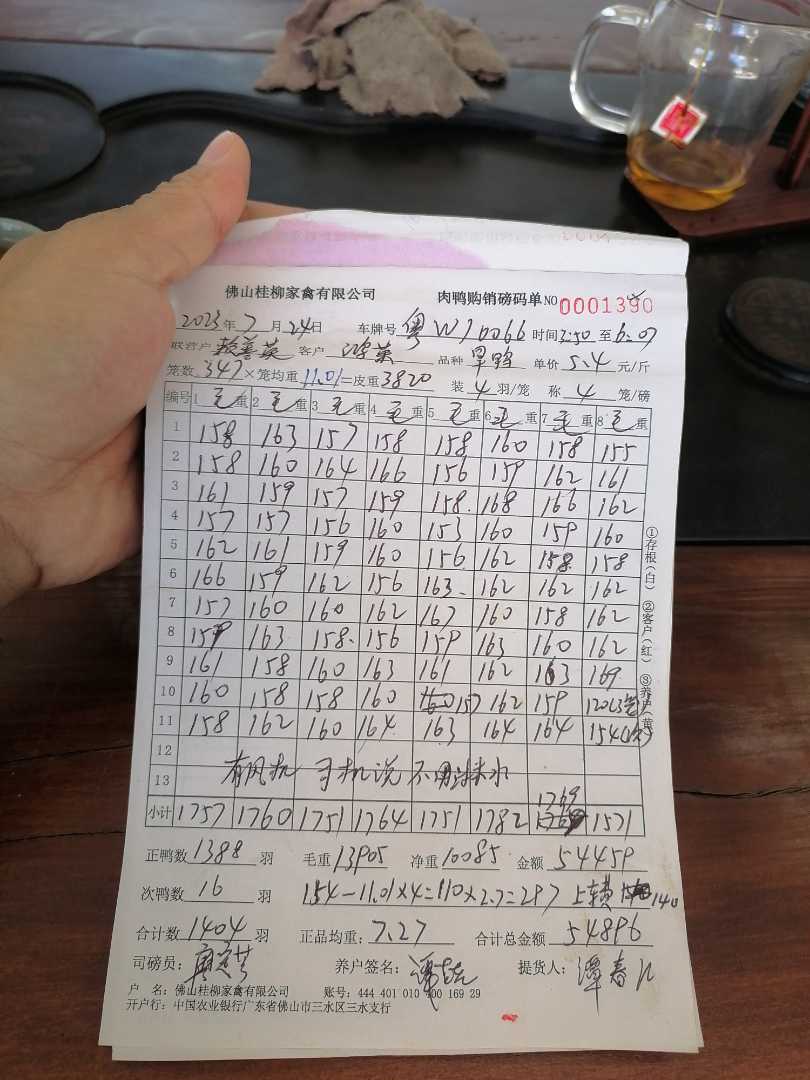 佛山桂柳家禽有限公司 肉鸭购销磅码单 NO 0001390
2023年7月24日 车牌号 粤W10066 时间3:50至6:07
联营户 客户 鸿英 品种 旱鸭 单价5.4元/斤
笼数347×笼均重11.01=皮重3820 装4羽/笼 称4笼/磅
编号 1毛重 2毛重 3毛重 4毛重 5毛重 6毛重 7毛重 8毛重
1 158 163 157 158 158 160 158 155
2 158 160 164 166 156 159 162 161
3 161 159 157 159 158 168 166 162
4 157 157 156 160 153 160 159 160
5 162 161 159 160 156 162 158 158
6 166 159 162 156 163 162 162 162
7 157 160 160 162 167 160 158 162
8 159 163 158 156 159 163 160 162
9 161 158 160 163 161 162 163 169
10 160 158 158 160 157 162 159 120(3笼)
11 158 162 160 164 163 164 164 154
12
13 有风机 司机说不用淋水
小计 1757 1760 1751 1764 1751 1782 1769 1571
正鸭数1388羽 毛重13905 净重10085 金额54459
次鸭数16羽 154-11.01×4=110×2.7=297 上车费140
合计数1404羽 正品均重:7.27 合计总金额54896
司磅员: 养户签名: 提货人:谭春
户 名:佛山桂柳家禽有限公司 账号:444 401 010 400 169 29
开户行:中国农业银行广东省佛山市三水区三水支行
①存根(白) ②客户(红) ③养户(黄)